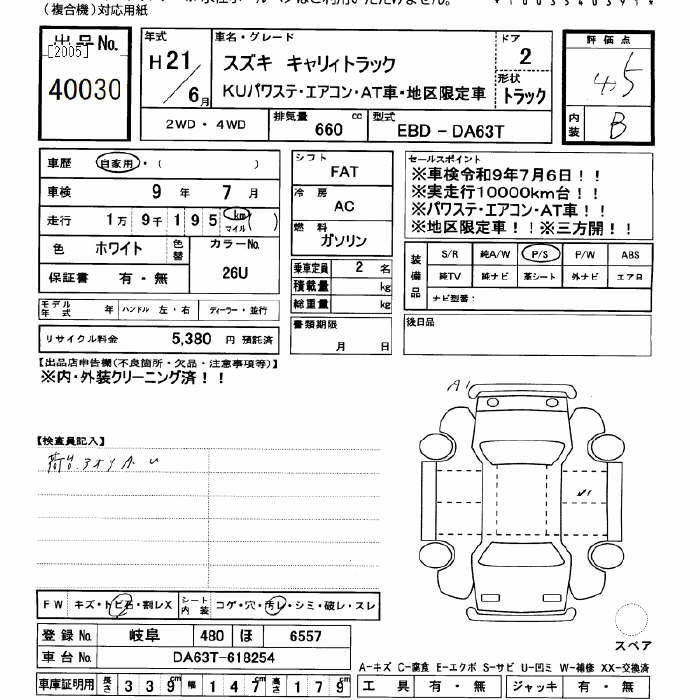 (複合機)対応用紙
出品No.
[2005]
40030
年式
H21/6月
車名・グレード
スズキ キャリィトラック
KUパワステ・エアコン・AT車・地区限定車
ドア
2
形状
トラック
評価点
4.5
内装
B
2WD・4WD
排気量
660 cc
型式
EBD-DA63T
車歴 自家用・( )
車検 9 年 7 月
走行 1万 9千 1 9 5 km マイル ( )
色 ホワイト 色替 カラーNo.
26U
保証書 有・無
モデル年式 年 ハンドル 左・右 ディーラー・並行
リサイクル料金 5,380 円 預託済
シフト
FAT
冷房
AC
燃料
ガソリン
乗車定員 2 名
積載量 kg
総重量 kg
書類期限
月 日
セールスポイント
※車検令和9年7月6日!!
※実走行10000km台!!
※パワステ・エアコン・AT車!!
※地区限定車!!※三方開!!
装備品
S/R 純A/W P/S P/W ABS
純TV 純ナビ 革シート 外ナビ エアB
ナビ型番:
後日品
【出品店申告欄(不良箇所・欠品・注意事項等)】
※内・外装クリーニング済!!
【検査員記入】
A1
FW キズ・トビ石・割レX シート内装 コゲ・穴・汚レ・シミ・破レ・スレ
登録No. 岐阜 480 ほ 6557
車台No. DA63T-618254
車庫証明用 長さ 339cm 幅 147cm 高さ 179cm
スペア
A-キズ C-腐食 E-エクボ S-サビ U-凹ミ W-補修 XX-交換済
工具 有・無 ジャッキ 有・無